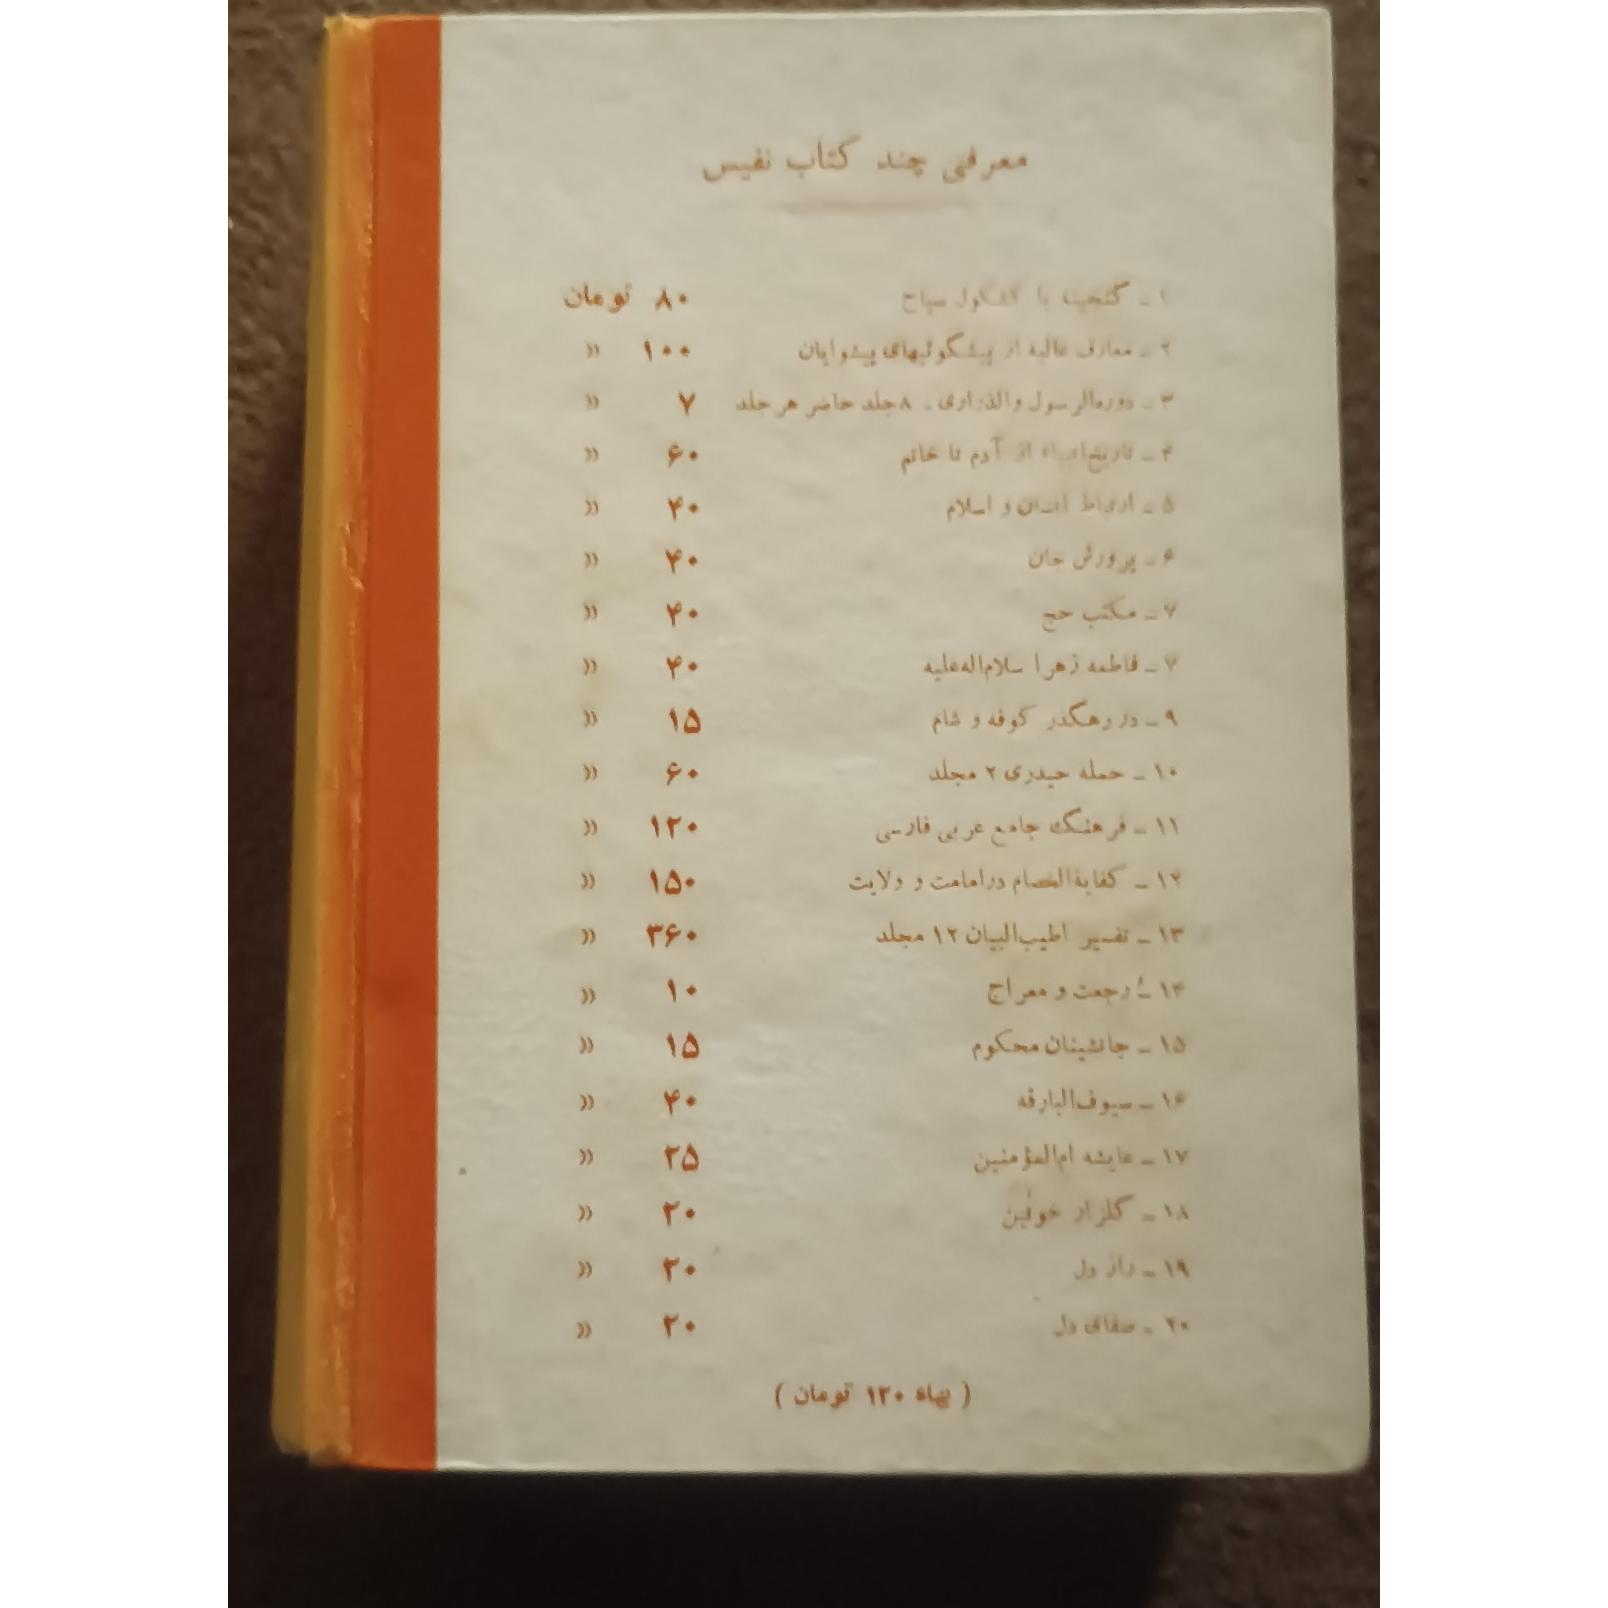 معرفی چند کتاب نفیس
۱ - گنجینه یا کشکول سیاح ۸۰ تومان
۲ - معارف عالیه از پیشگوئیهای پیشوایان ۱۰۰ »
۳ - دوره‌الرسول والذراری - ۸ جلد حاضر هر جلد ۷ »
۴ - تاریخ انبیاء از آدم تا خاتم ۶۰ »
۵ - ارتباط انسان و اسلام ۴۰ »
۶ - پرورش جان ۴۰ »
۷ - مکتب حج ۴۰ »
۷ - فاطمه زهرا سلام‌اله‌علیه ۴۰ »
۹ - در رهگذر کوفه و شام ۱۵ »
۱۰ - حمله حیدری ۲ مجلد ۶۰ »
۱۱ - فرهنگ جامع عربی فارسی ۱۲۰ »
۱۲ - کفایةالخصام درامامت و ولایت ۱۵۰ »
۱۳ - تفسیر اطیب‌البیان ۱۲ مجلد ۳۶۰ »
۱۴ - رجعت و معراج ۱۰ »
۱۵ - جانشینان محکوم ۱۵ »
۱۶ - سیوف‌البارقه ۴۰ »
۱۷ - عایشه ام‌المؤمنین ۲۵ »
۱۸ - گلزار خونین ۲۰ »
۱۹ - راز دل ۲۰ »
۲۰ - صفای دل ۲۰ »
( بهاء ۱۲۰ تومان )